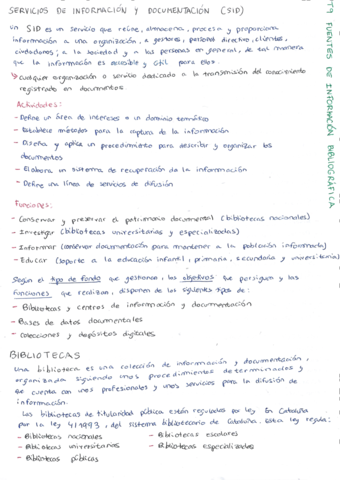 SERVICIOS DE INFORMACIÓN Y DOCUMENTACIÓN (SID)
un SID es un servicio que reúne, almacena, procesa y proporciona
información a una organización, a gestores, personal directivo, clientes,
ciudadanos; a la sociedad y a las personas en general, de tal manera
que la información es accesible y útil para ellos.
↳ cualquier organización o servicio dedicado a la transmisión del conocimiento
registrado en documentos
Actividades:
- Define un área de intereses o un dominio temático
- Establece métodos para la captura de la información
- Diseña y aplica un procedimiento para describir y organizar los
documentos
- Elabora un sistema de recuperación de la información
- Define una línea de servicios de difusión
Funciones:
- Conservar y preservar el patrimonio documental (bibliotecas nacionales)
- Investigar (bibliotecas universitarias y especializadas)
- Informar (conservar documentación para mantener a la población informada)
- Educar (soporte a la educación infantil, primaria, secundaria y universitaria)
Según el tipo de fondo que gestionan, los objetivos que persiguen y las
funciones que realizan, disponen de los siguientes tipos de:
- Bibliotecas y centros de información y documentación
- Bases de datos documentales
- colecciones y depósitos digitales
BIBLIOTECAS
una biblioteca es una colección de información y documentación,
organizada siguiendo unos procedimientos determinados y
se cuenta con unos profesionales y unos servicios para la difusión de
información.
Las bibliotecas de titularidad pública están reguladas por ley. En Cataluña
por la ley 4/1993, del sistema bibliotecario de Cataluña. Esta ley regula:
- Bibliotecas nacionales - Bibliotecas escolares
- Bibliotecas universitarias - Bibliotecas especializadas
- Bibliotecas públicas
T9 FUENTES DE INFORMACIÓN BIBLIOGRÁFICA